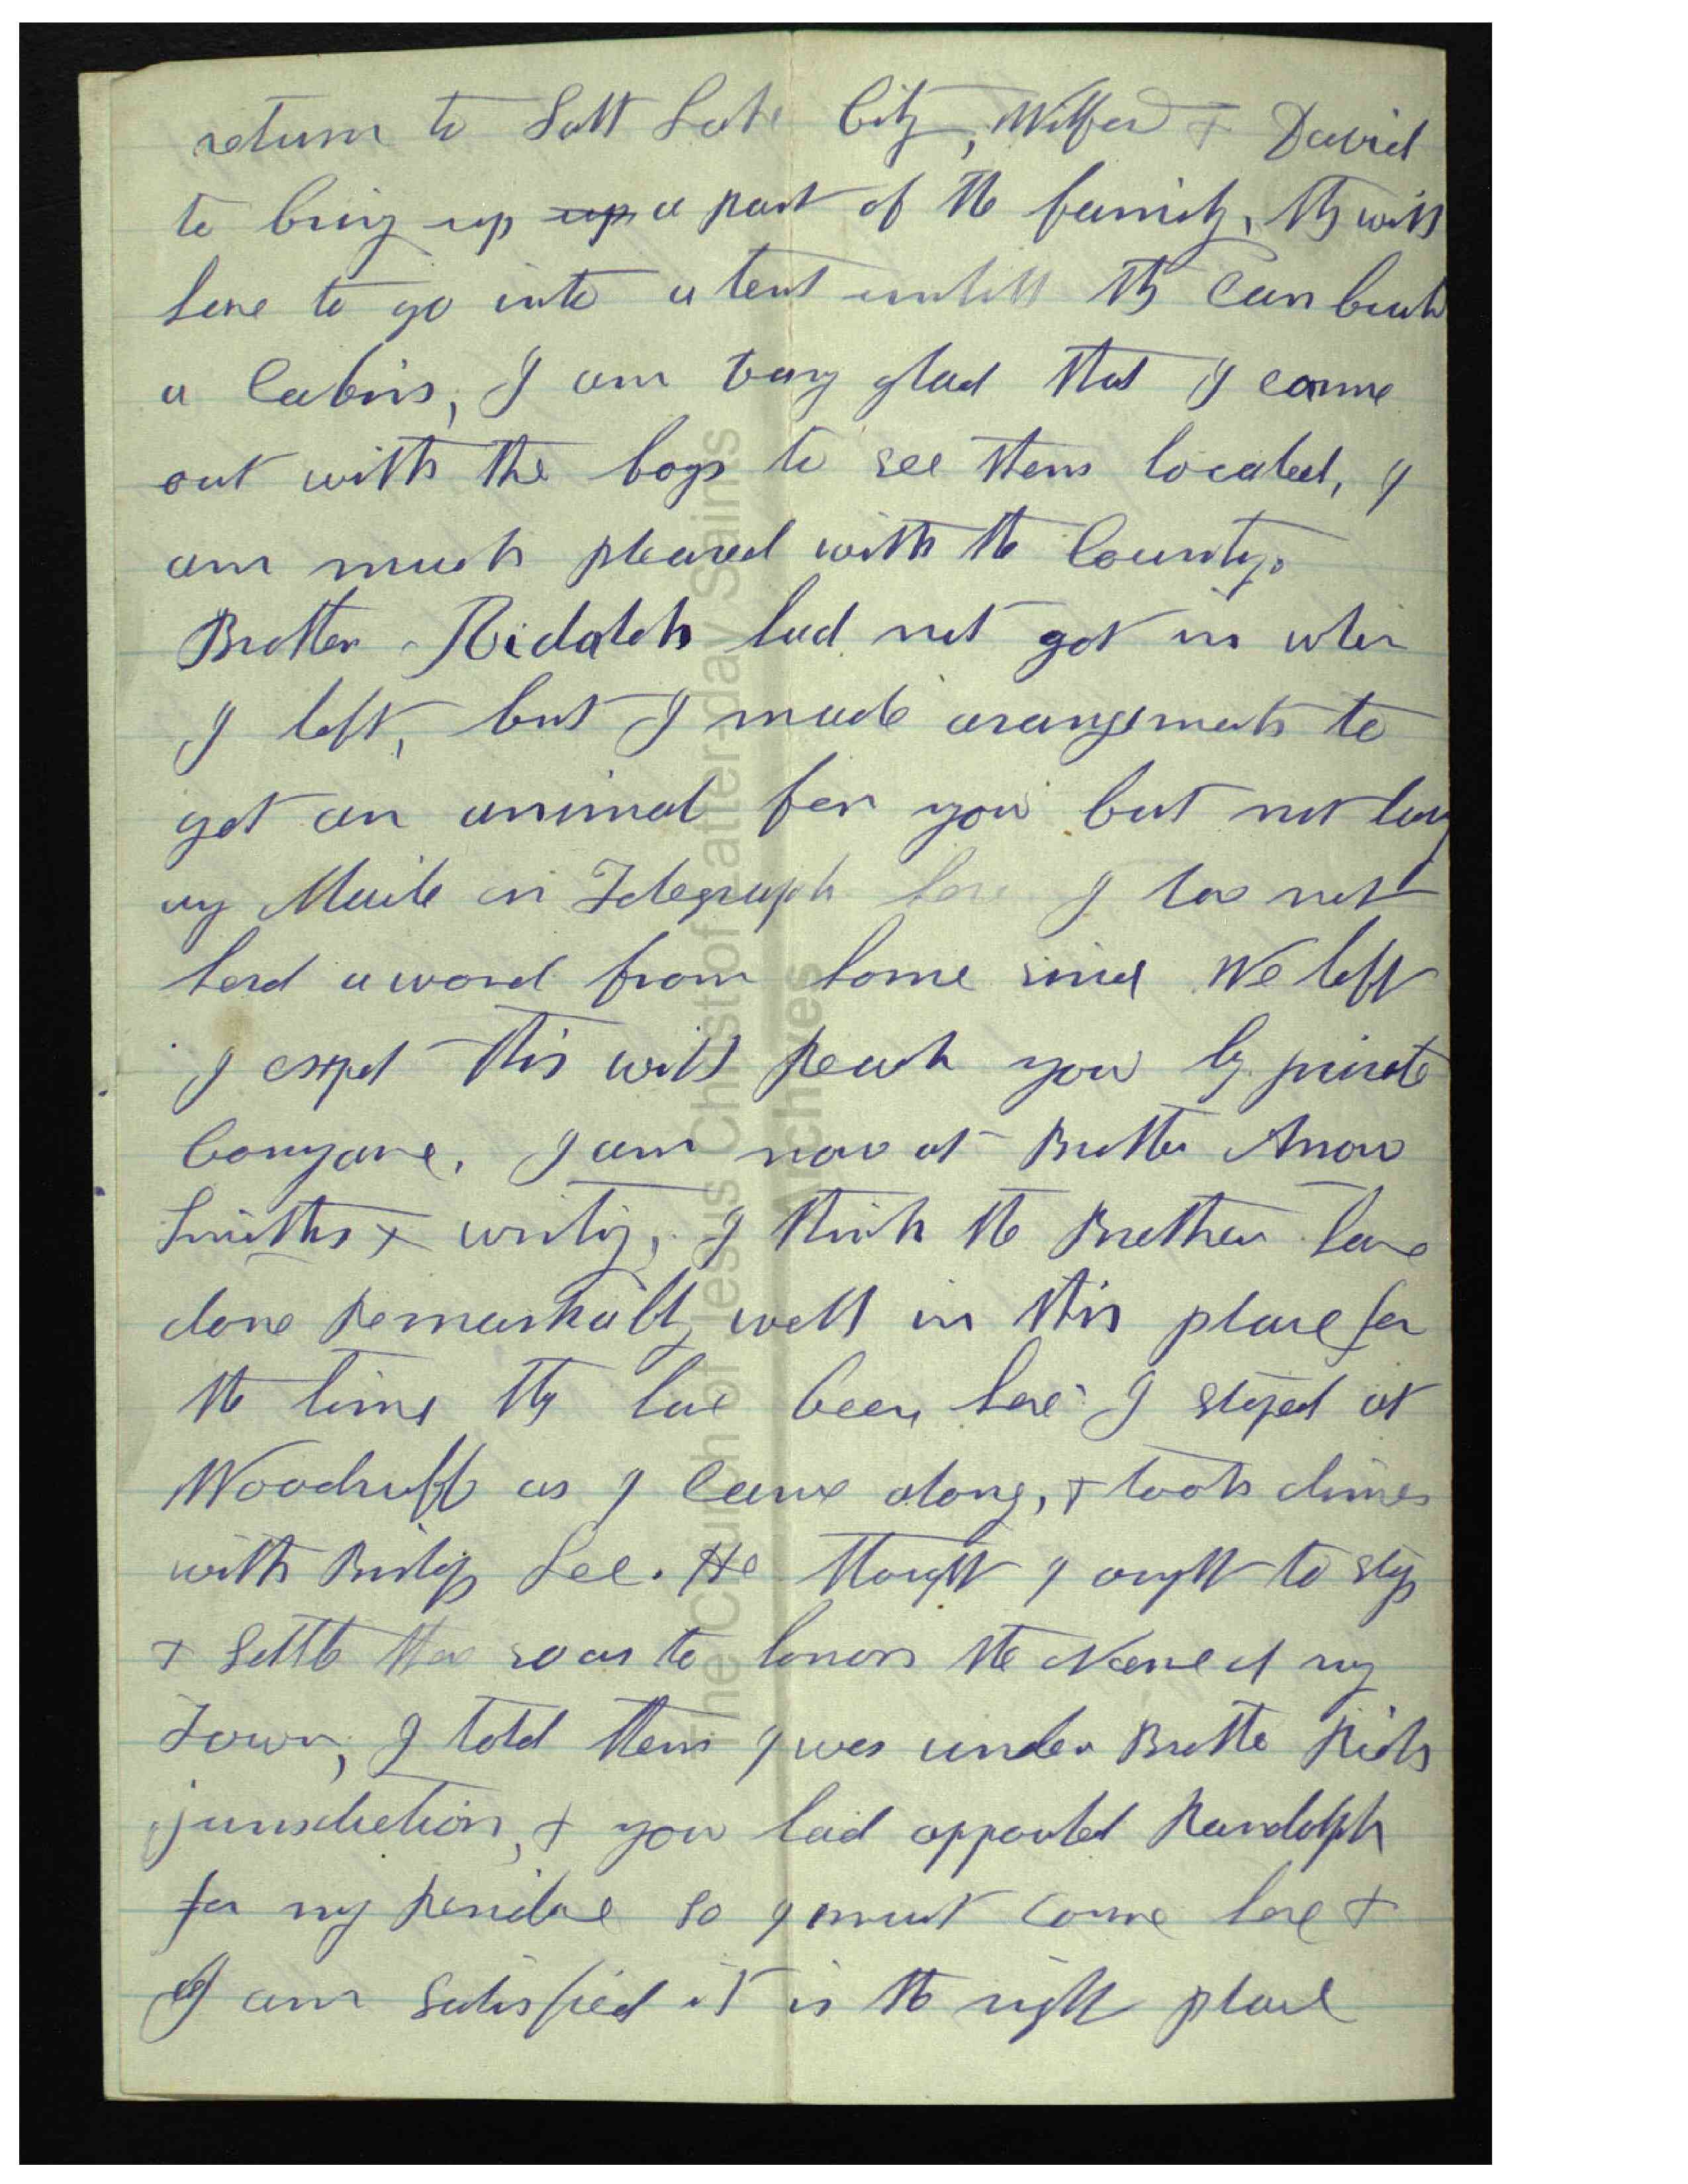 return to Salt Lake City, Wilford & David
to bring up up a part of the family, they will
have to go into a tent untill they can build
a Cabin, I am vary glad that I came
out with the boys to see them located, I
am much pleased with the County.
Brother Ridalch had not got in when
I left, but I made arangements to
get an animal for you but not having
any Maile or Telegraph here I have not
herd a word from home since We left
I expet this will reach you by private
Conyane. I am now at Brother Snow
Smiths & writing, I think the Brethren have
done Remarkably well in this place for
the time they have been here I stoped at
Woodruff as I came along, & took dinner
with Bishop Lee. He thought I ought to stop
& Settle there so as to honor the Name of my
Town, I told them I was under Brother Richs
jurisdiction, & you had appointed Randolph
for my Residence so I must come here &
I am satisfied it is the right place
The Church of Jesus Christ of Latter-day Saints
Archives